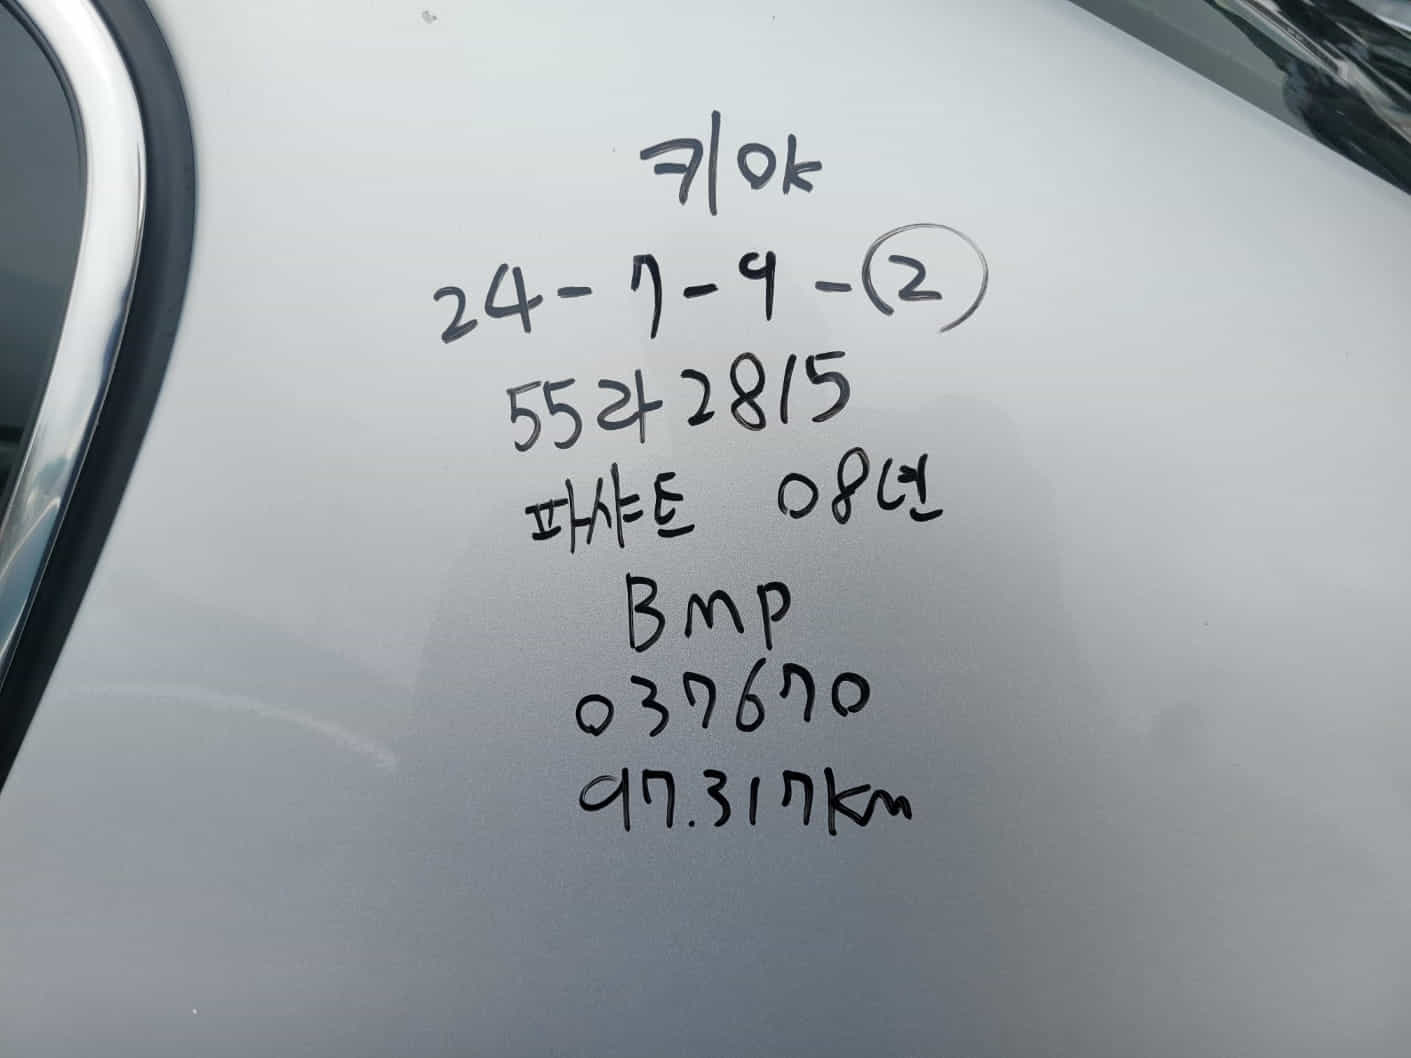 키 ok
24-7-9-②
55라2815
파샤트 08년
Bmp
037670
97.317km